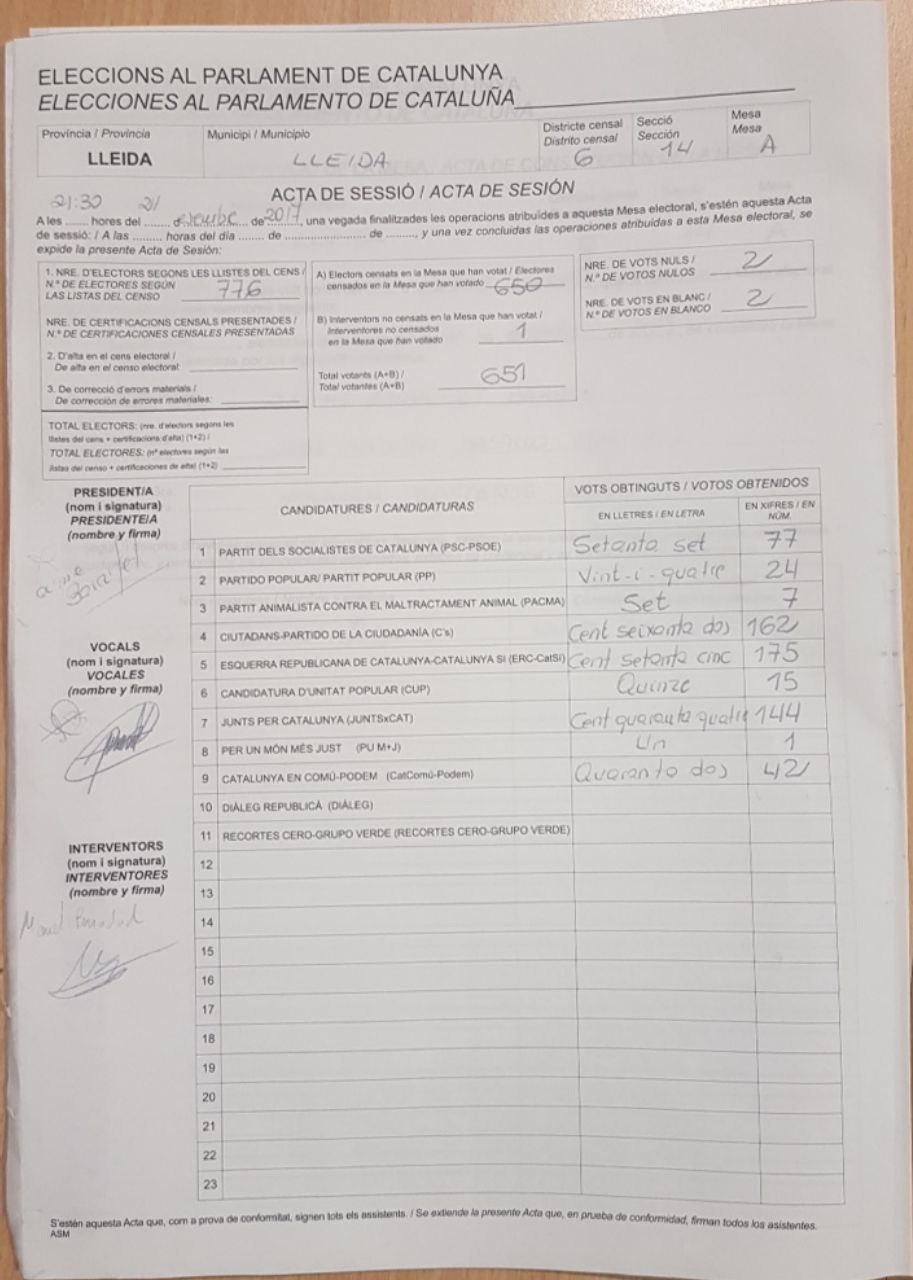 ELECCIONS AL PARLAMENT DE CATALUNYA
ELECCIONES AL PARLAMENTO DE CATALUÑA
Província / Provincia
LLEIDA
Municipi / Municipio
LLEIDA
Districte censal
Distrito censal
6
Secció
Sección
14
Mesa
Mesa
A
ACTA DE SESSIÓ / ACTA DE SESIÓN
21:30 21
A les ........ hores del ....... d ....... de 2017, una vegada finalitzades les operacions atribuïdes a aquesta Mesa electoral, s'estén aquesta Acta
de sessió: / A las ......... horas del día ....... de ...................... de ........, y una vez concluidas las operaciones atribuidas a esta Mesa electoral, se
expide la presente Acta de Sesión:
1. NRE. D'ELECTORS SEGONS LES LLISTES DEL CENS /
N.º DE ELECTORES SEGÚN
LAS LISTAS DEL CENSO 776
NRE. DE CERTIFICACIONS CENSALS PRESENTADES /
N.º DE CERTIFICACIONES CENSALES PRESENTADAS
2. D'alta en el cens electoral /
De alta en el censo electoral:
3. De correcció d'errors materials /
De corrección de errores materiales:
TOTAL ELECTORS: (nre. d'electors segons les
llistes del cens + certificacions d'alta) (1+2) /
TOTAL ELECTORES: (nº electores según las
listas del censo + certificaciones de alta) (1+2)
A) Electors censats en la Mesa que han votat / Electores
censados en la Mesa que han votado 650
B) Interventors no censats en la Mesa que han votat /
Interventores no censados
en la Mesa que han votado 1
Total votants (A+B) /
Total votantes (A+B) 651
NRE. DE VOTS NULS /
N.º DE VOTOS NULOS 2
NRE. DE VOTS EN BLANC /
N.º DE VOTOS EN BLANCO 2
PRESIDENT/A
(nom i signatura)
PRESIDENTE/A
(nombre y firma)
VOCALS
(nom i signatura)
VOCALES
(nombre y firma)
INTERVENTORS
(nom i signatura)
INTERVENTORES
(nombre y firma)
CANDIDATURES / CANDIDATURAS
VOTS OBTINGUTS / VOTOS OBTENIDOS
EN LLETRES / EN LETRA
EN XIFRES / EN NÚM.
1 PARTIT DELS SOCIALISTES DE CATALUNYA (PSC-PSOE) Setanta set 77
2 PARTIDO POPULAR/ PARTIT POPULAR (PP) Vint-i-quatre 24
3 PARTIT ANIMALISTA CONTRA EL MALTRACTAMENT ANIMAL (PACMA) Set 7
4 CIUTADANS-PARTIDO DE LA CIUDADANÍA (C's) Cent seixanta dos 162
5 ESQUERRA REPUBLICANA DE CATALUNYA-CATALUNYA SÍ (ERC-CatSí) Cent setanta cinc 175
6 CANDIDATURA D'UNITAT POPULAR (CUP) Quinze 15
7 JUNTS PER CATALUNYA (JUNTSxCAT) Cent quaranta quatre 144
8 PER UN MÓN MÉS JUST (PU M+J) Un 1
9 CATALUNYA EN COMÚ-PODEM (CatComú-Podem) Quaranta dos 42
10 DIÀLEG REPUBLICÀ (DIÀLEG)
11 RECORTES CERO-GRUPO VERDE (RECORTES CERO-GRUPO VERDE)
12
13
14
15
16
17
18
19
20
21
22
23
S'estén aquesta Acta que, com a prova de conformitat, signen tots els assistents. / Se extiende la presente Acta que, en prueba de conformidad, firman todos los asistentes.
ASM